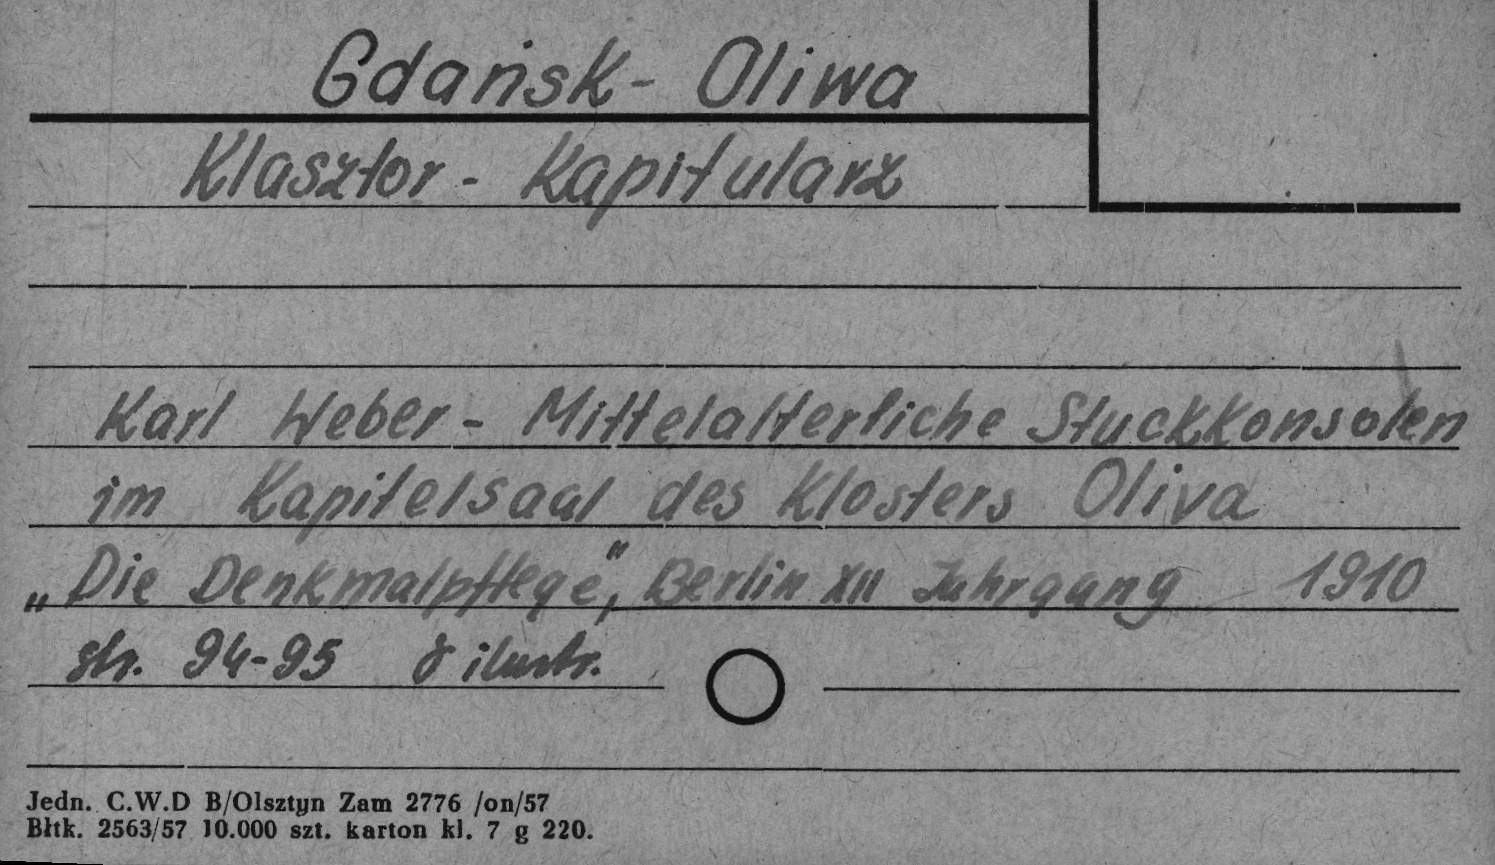 Gdańsk - Oliwa
Klasztor - Kapitularz
Karl Weber - Mittelalterliche Stuckkonsolen
im Kapitelsaal des Klosters Oliva
„Die Denkmalpflege", Berlin XII Jahrgang 1910
str. 94-95 8 ilustr.
Jedn. C.W.D B/Olsztyn Zam 2776 /on/57
Błtk. 2563/57 10.000 szt. karton kl. 7 g 220.